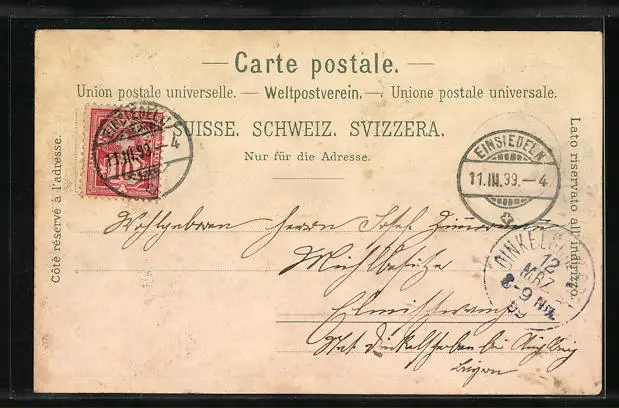 Carte postale.
Union postale universelle. — Weltpostverein. — Unione postale universale.
SUISSE. SCHWEIZ. SVIZZERA.
Nur für die Adresse.
Côté réservé à l'adresse.
Lato riservato all'indirizzo.
EINSIEDELN
11.III.99.—4
EINSIEDELN
11.III.99.—4
DINKEL
12
MRZ
8-9 Nm.
99
Wohlgeboren Herrn Josef
Mühlbesitzer
Post Dinkelscherben bei Augsburg
Bayern